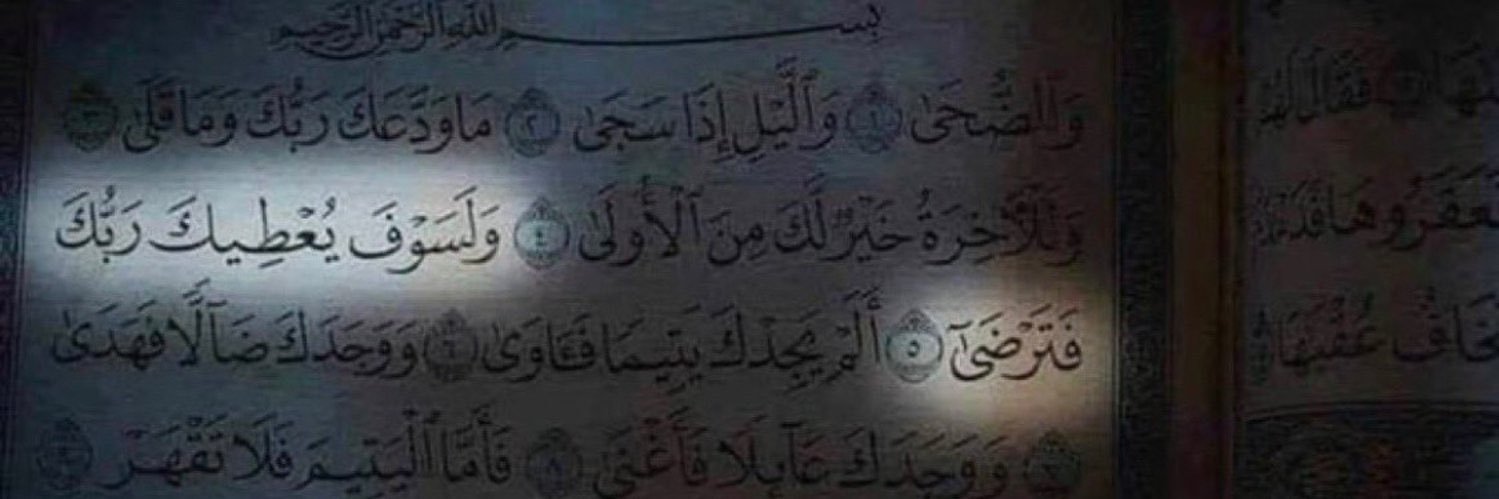 بِسْمِ ٱللَّهِ ٱلرَّحْمَٰنِ ٱلرَّحِيمِ
وَٱلضُّحَىٰ ١ وَٱلَّيْلِ إِذَا سَجَىٰ ٢ مَا وَدَّعَكَ رَبُّكَ وَمَا قَلَىٰ ٣
وَلَلْأَخِرَةُ خَيْرٌ لَّكَ مِنَ ٱلْأُولَىٰ ٤ وَلَسَوْفَ يُعْطِيكَ رَبُّكَ
فَتَرْضَىٰٓ ٥ أَلَمْ يَجِدْكَ يَتِيمًا فَـَٔاوَىٰ ٦ وَوَجَدَكَ ضَآلًّا فَهَدَىٰ
٧ وَوَجَدَكَ عَآئِلًا فَأَغْنَىٰ ٨ فَأَمَّا ٱلْيَتِيمَ فَلَا تَقْهَرْ ٩
فَقَالَ لَهُمْ
فَعَقَرُوهَا
يَخَافُ عُقْبَٰهَا